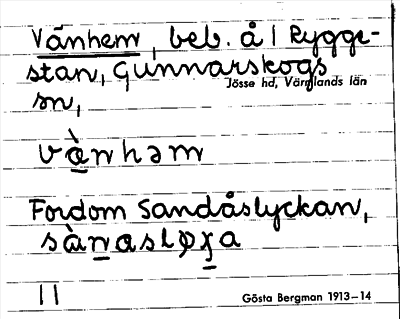 Vänhem, beb. å l Rygge-
stan, Gunnarskogs
Jösse hd, Värmlands län
sn,
vὰnhəm
Fordom Sandåslyckan,
sὰnaslo̗χa
11
Gösta Bergman 1913–14